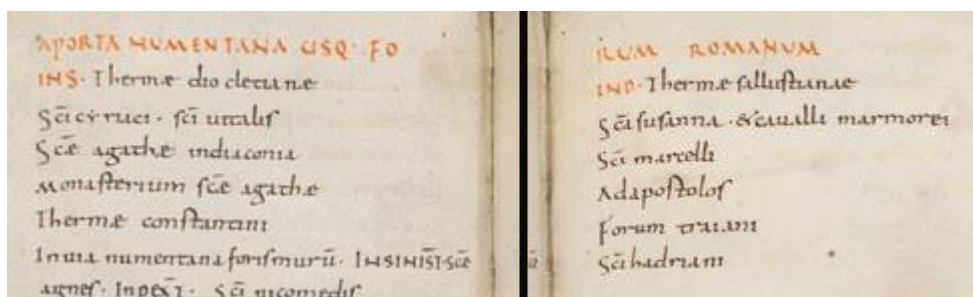 APORTA NUMENTANA USQ· FO
INS· Thermæ dio cletianæ
Sc̄i cyriaci · sc̄i uitalis
Sc̄æ agathæ indiaconia
Monasterium sc̄e agathæ
Thermæ constantini
Inuia numentana forismurū· INSINISTSc̄e
agnes· Indext̄· Sc̄i nicomedis
RUM ROMANUM
IND· Thermæ sallustianae
Sc̄a susanna · &caualli marmorei
Sc̄i marcelli
Adapostolos
Forum traiani
Sc̄i hadriani